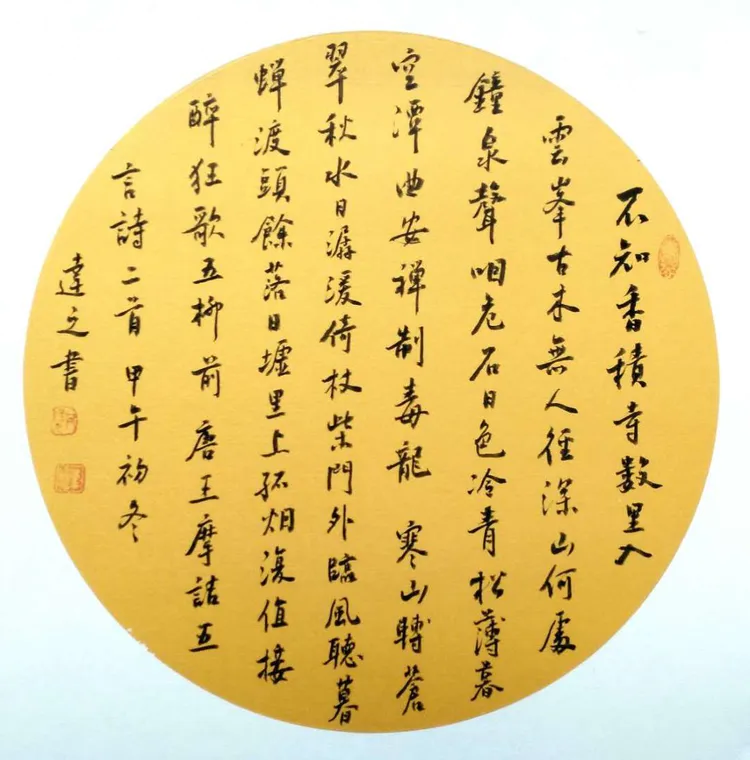 不知香積寺數里入
雲峯古木無人徑深山何處
鐘泉聲咽危石日色冷青松薄暮
空潭曲安禪制毒龍 寒山轉蒼
翠秋水日潺湲倚杖柴門外臨風聽暮
蟬渡頭餘落日墟里上孤烟復值接
醉狂歌五柳前 唐王摩詰五
言詩二首 甲午初冬
達之書